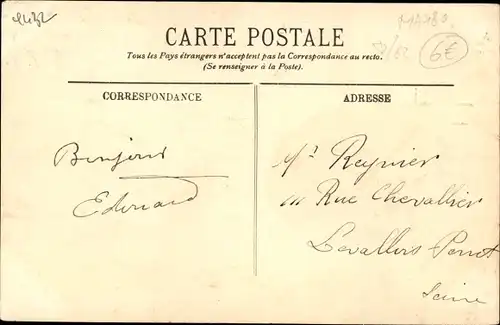 CARTE POSTALE
Tous les Pays étrangers n'acceptent pas la Correspondance au recto.
(Se renseigner à la Poste).
6€
CORRESPONDANCE
ADRESSE
Bonjour
Edouard
Mr Reynier
111 Rue Chevallier
Levallois Perret
Seine